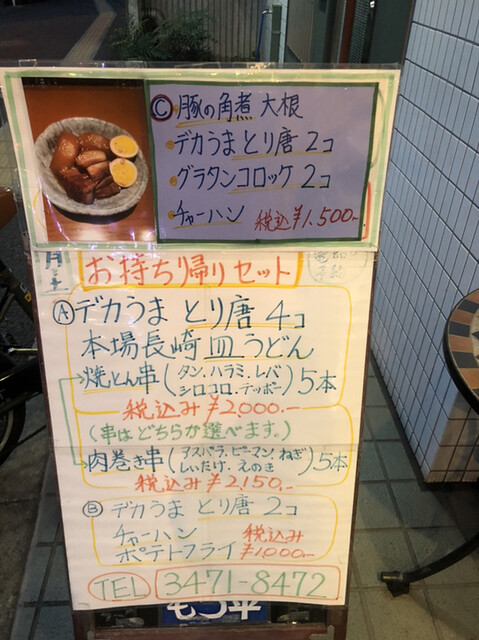 Ⓒ豚の角煮 大根
・デカうま とり唐 2コ
・グラタンコロッケ 2コ
・チャーハン 税込¥1,500-
お持ち帰りセット
Ⓐデカうま とり唐 4コ
本場長崎皿うどん
焼とん串(タン、ハラミ、レバ シロコロ、テッポー)5本
税込み¥2,000.-
(串はどちらか選べます。)
肉巻き串(アスパラ、ピーマン、ねぎ しいたけ、えのき)5本
税込み¥2,150.-
Ⓑデカうま とり唐 2コ
チャーハン 税込み
ポテトフライ ¥1,000-
TEL 3471-8472